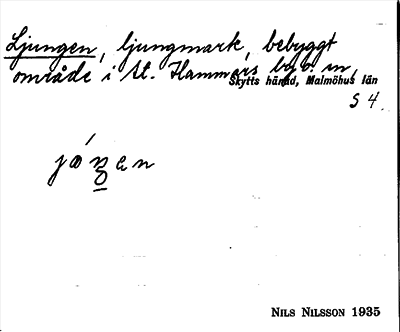 Ljungen, ljungmark, bebyggt
område i St. Hammars by o. m,
Skytts härad, Malmöhus län
S 4.
NILS NILSSON 1935